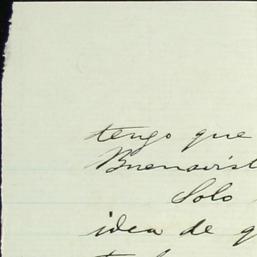 tengo que
Buenavist
Solo
idea de q